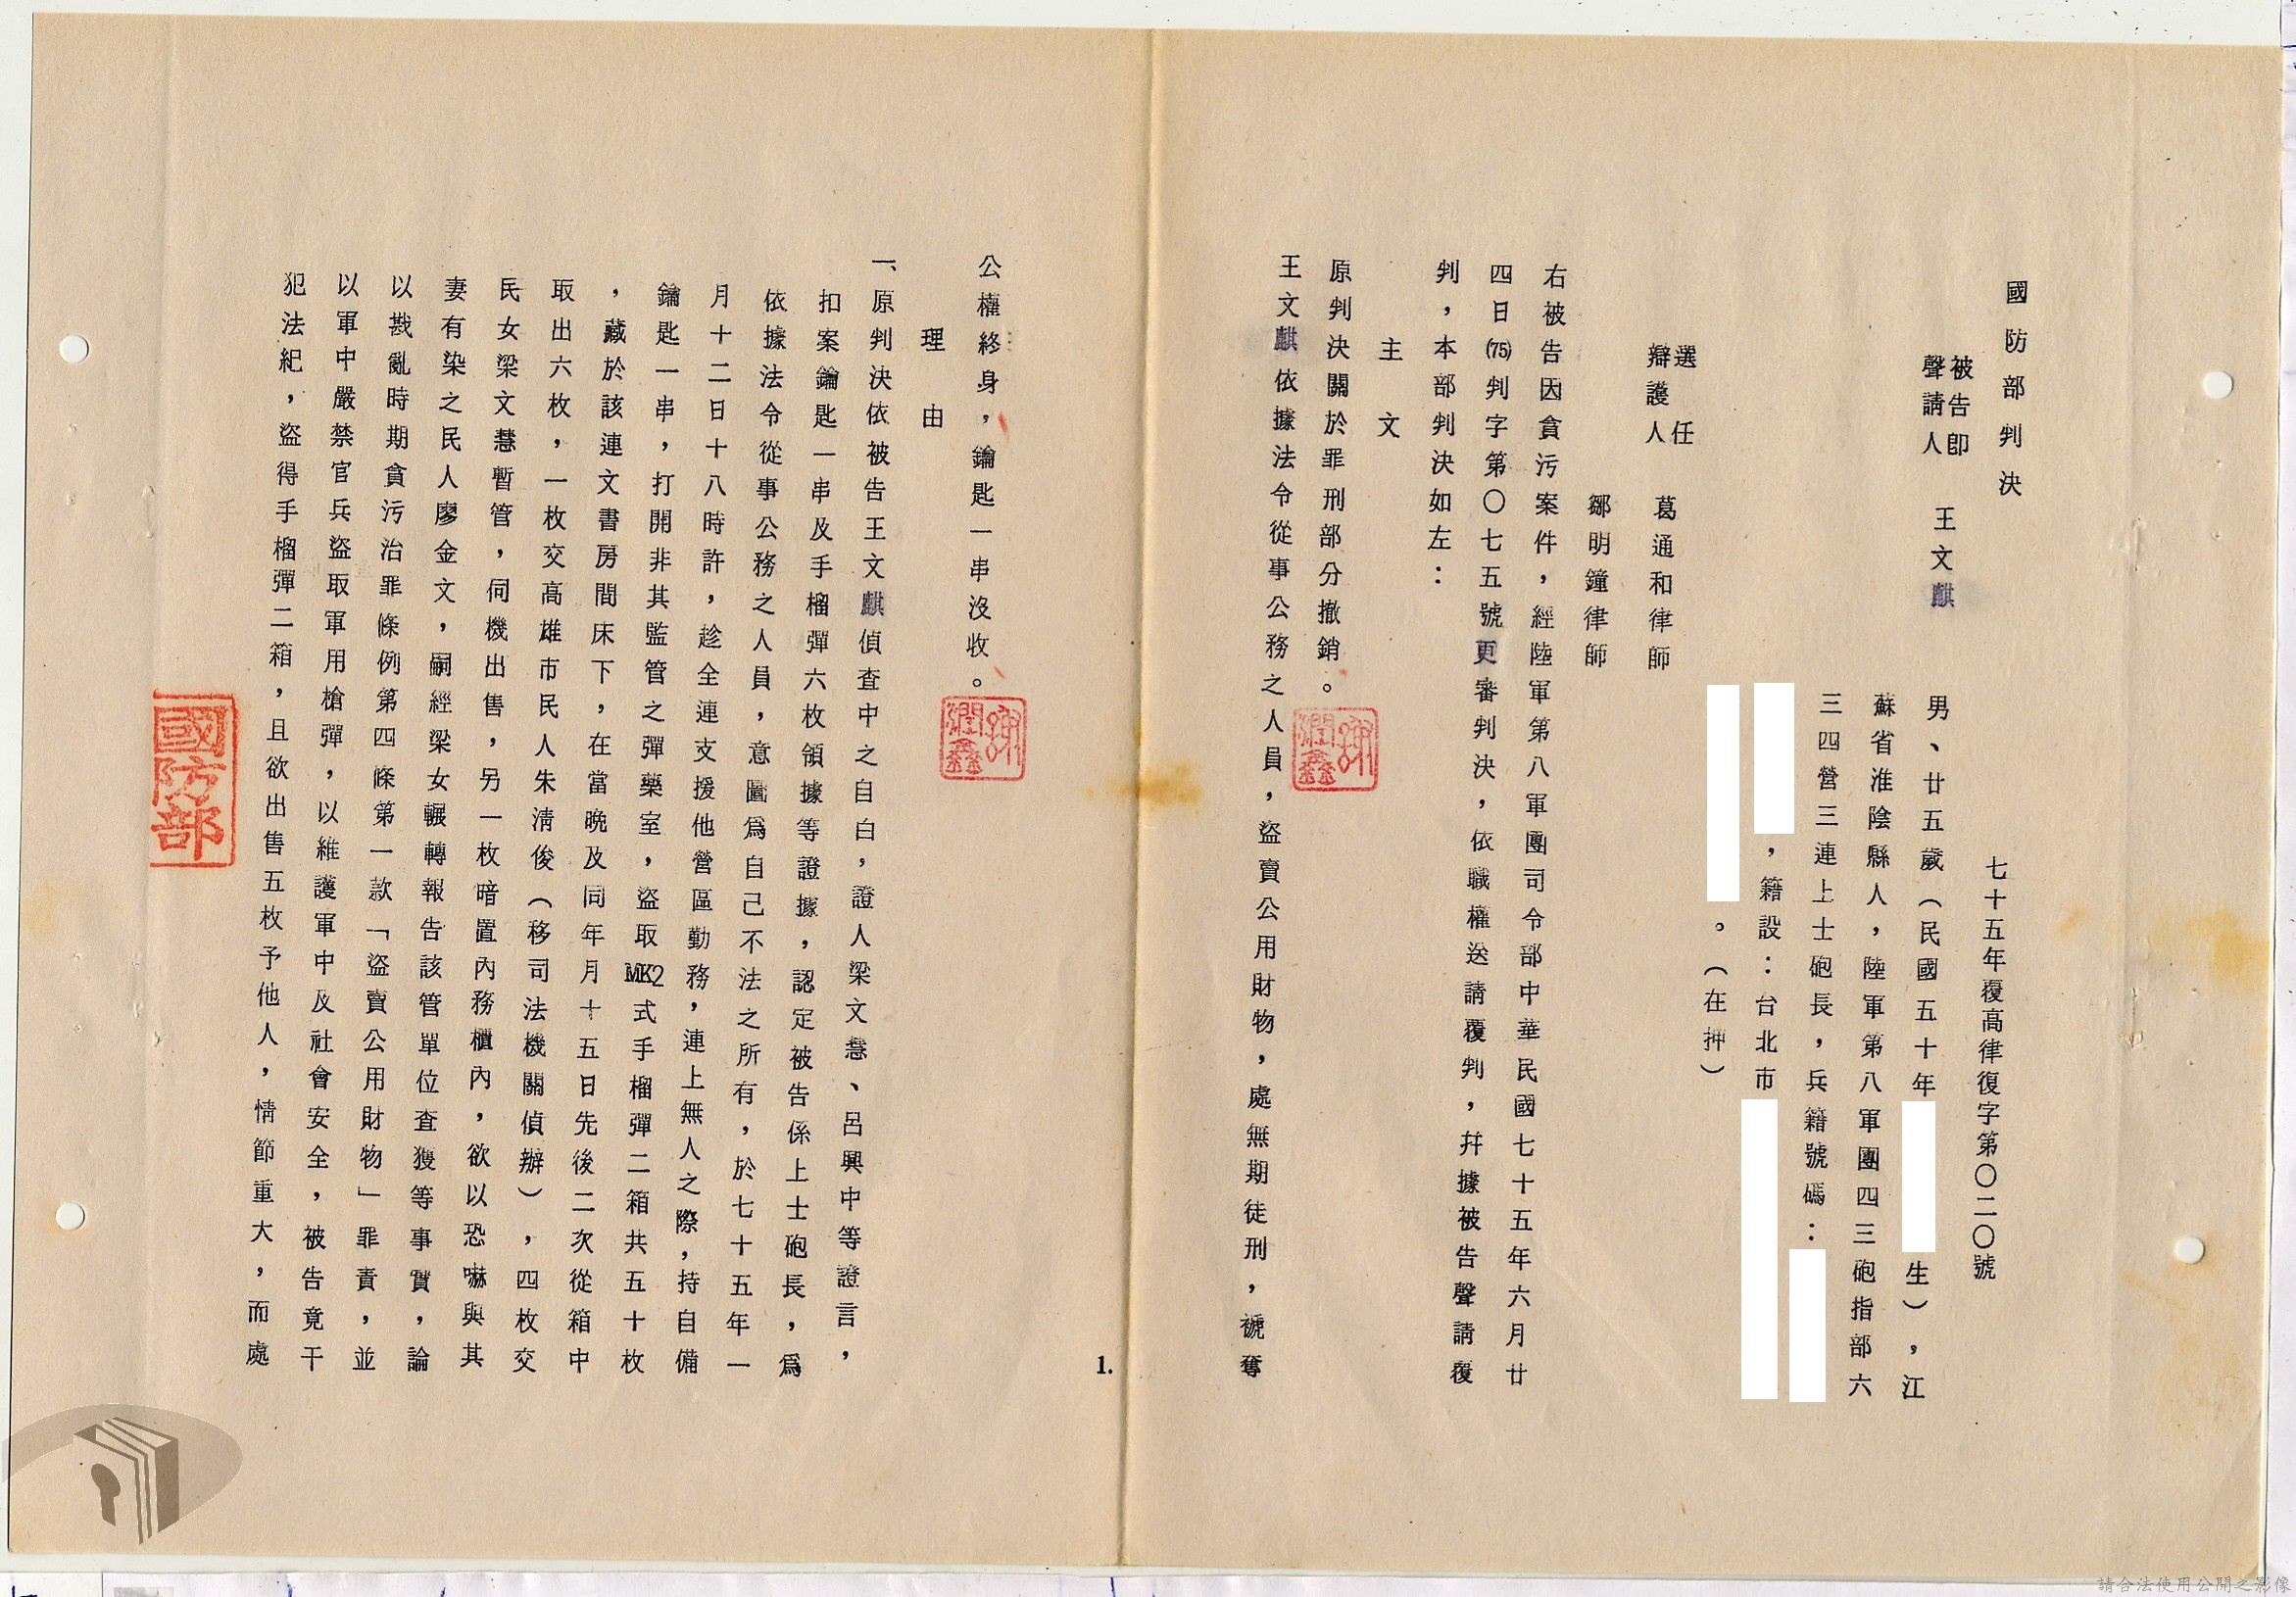 國防部判決
七十五年覆高律復字第〇二〇號
被告即
聲請人 王文麒 男、廿五歲（民國五十年生），江
蘇省淮陰縣人，陸軍第八軍團四三砲指部六
三四營三連上士砲長，兵籍號碼：
，籍設：台北市
。（在押）
選任
辯護人 葛通和律師
鄒明鐘律師
右被告因貪污案件，經陸軍第八軍團司令部中華民國七十五年六月廿
四日(75)判字第〇七五號更審判決，依職權送請覆判，幷據被告聲請覆
判，本部判決如左：
主文
原判決關於罪刑部分撤銷。
王文麒依據法令從事公務之人員，盜賣公用財物，處無期徒刑，褫奪
1.
公權終身，鑰匙一串沒收。
理由
一、原判決依被告王文麒偵查中之自白，證人梁文慧、呂興中等證言，
扣案鑰匙一串及手榴彈六枚領據等證據，認定被告係上士砲長，爲
依據法令從事公務之人員，意圖爲自己不法之所有，於七十五年一
月十二日十八時許，趁全連支援他營區勤務，連上無人之際，持自備
鑰匙一串，打開非其監管之彈藥室，盜取MK2式手榴彈二箱共五十枚
，藏於該連文書房間床下，在當晚及同年月十五日先後二次從箱中
取出六枚，一枚交高雄市民人朱淸俊（移司法機關偵辦），四枚交
民女梁文慧暫管，伺機出售，另一枚暗置內務櫃內，欲以恐嚇與其
妻有染之民人廖金文，嗣經梁女輾轉報告該管單位查獲等事實，論
以戡亂時期貪污治罪條例第四條第一款「盜賣公用財物」罪責，並
以軍中嚴禁官兵盜取軍用槍彈，以維護軍中及社會安全，被告竟干
犯法紀，盜得手榴彈二箱，且欲出售五枚予他人，情節重大，而處
謝潤鑫
謝潤鑫
國防部
請合法使用公開之影像